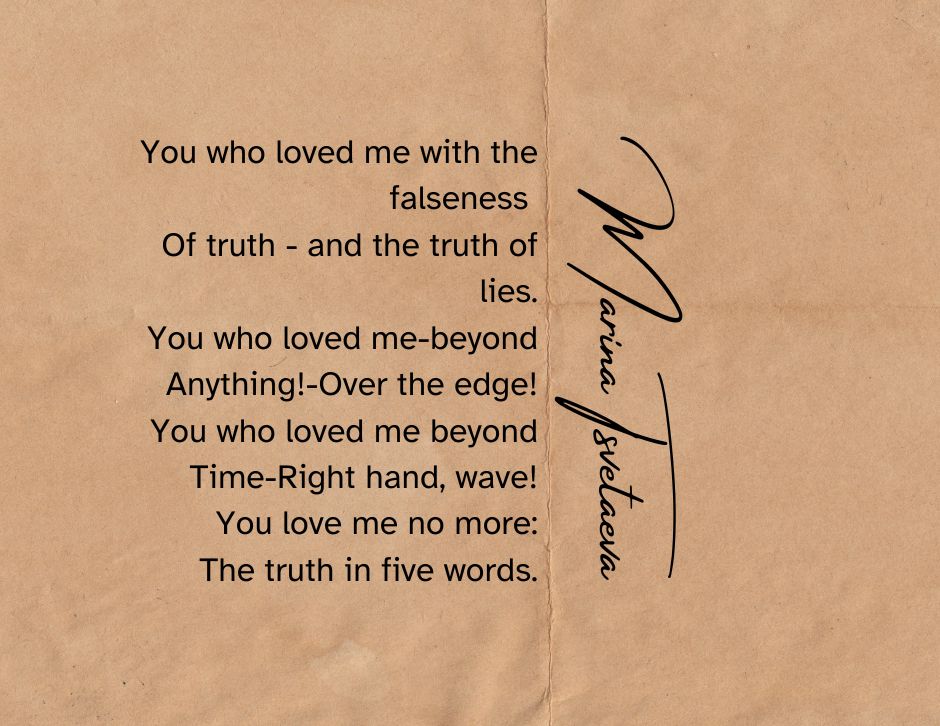 You who loved me with the
falseness
Of truth - and the truth of
lies.
You who loved me-beyond
Anything!-Over the edge!
You who loved me beyond
Time-Right hand, wave!
You love me no more:
The truth in five words.
Marina Tsvetaeva